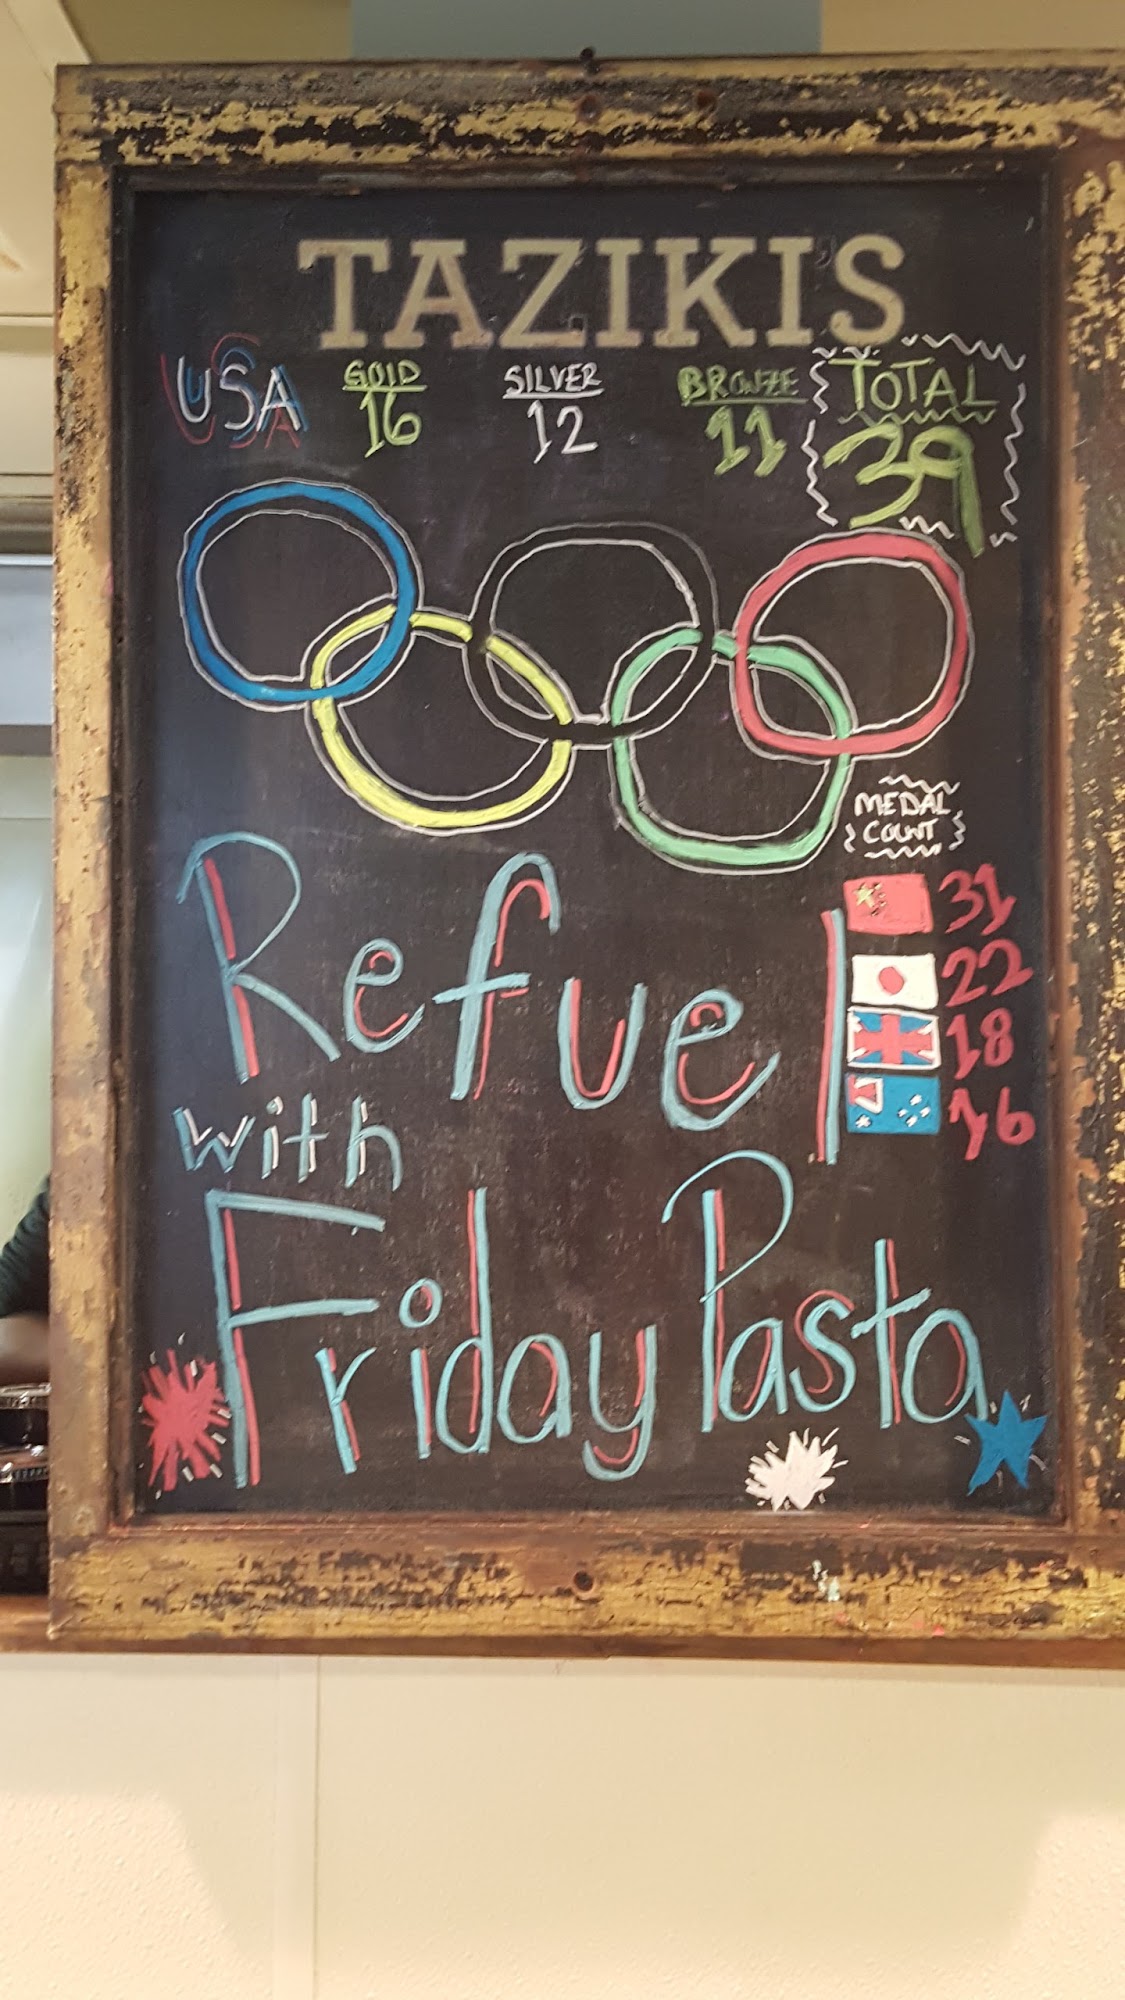 TAZIKIS
USA GOLD SILVER BRONZE TOTAL
16 12 11 39
MEDAL
COUNT
Refuel
31
22
18
16
with
Friday Pasta